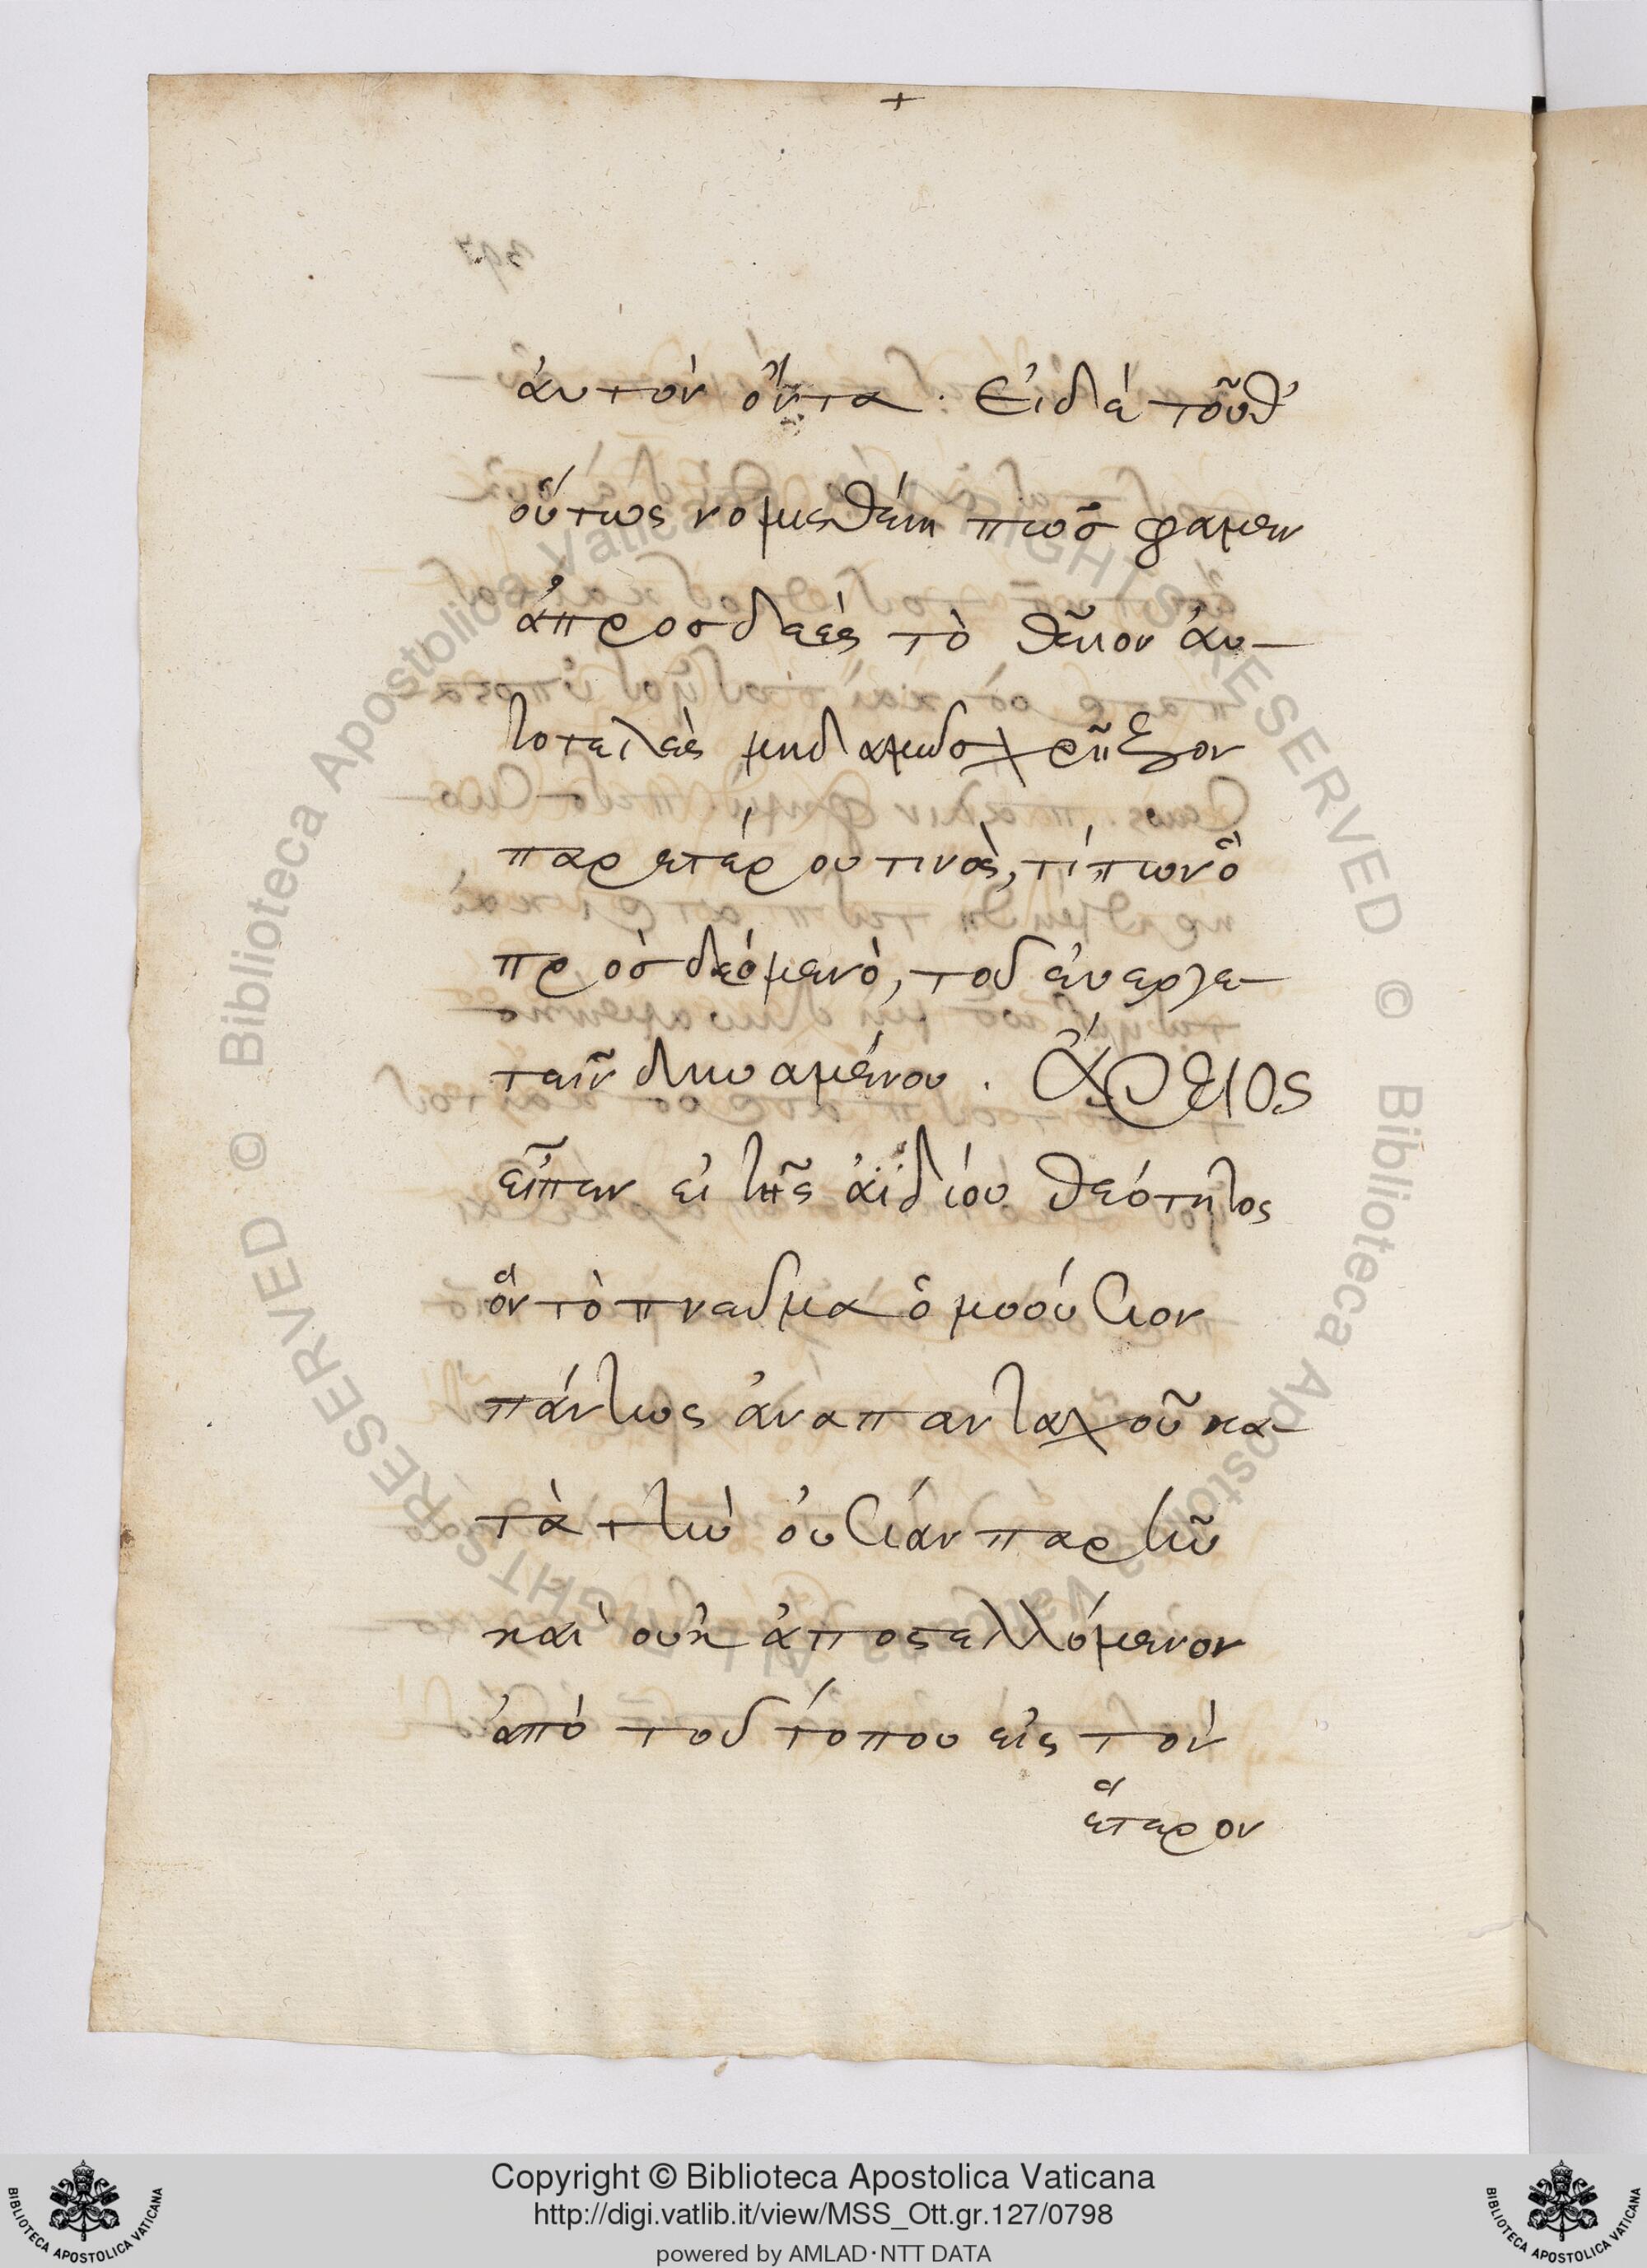 +
397
ἀυτὸν ὄντα. Εἰ δὲ τοῦθ'
οὕτως νομισθείη πῶσ φαμεν
ἀπροσδεὲς τὸ θεῖον ἀυ-
τοτελὲς μηδαμῶσ χρῇζον
παρ ετέρου τινὸς, τίπων ὃ
πρὸσ δεόμενὸ, τοῦ ἐυεργε-
τεῖν δυναμένου. ἌΡΕΙΟΣ
εἶπεν εἰ τῆς ἀϊδίου θεότητος
ὃν τὸ πνεῦμα ὁμοούσιον
πάντως ἀναπανταχοῦ κα-
τὰ τὴν ὀυσίαν παρ ἦν
καὶ οὐκ ἀποστελλόμενον
ἀπὸ τοῦ τόπου εἰς τὸν
ἕτερον
Copyright © Biblioteca Apostolica Vaticana
http://digi.vatlib.it/view/MSS_Ott.gr.127/0798
powered by AMLAD·NTT DATA
BIBLIOTECA APOSTOLICA VATICANA
BIBLIOTECA APOSTOLICA VATICANA
© Biblioteca Apostolica Vaticana ALL RIGHTS RESERVED
© Biblioteca Apostolica Vaticana ALL RIGHTS RESERVED